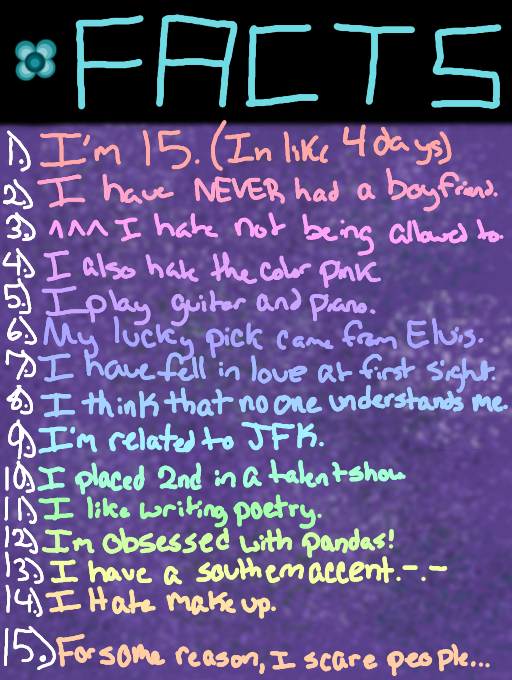 FACTS
1.) I'm 15. (In like 4 days)
2.) I have NEVER had a boyfriend.
3.) ^^^ I hate not being allowed to.
4.) I also hate the color pink
5.) I play guitar and piano.
6.) My lucky pick came from Elvis.
7.) I have fell in love at first sight.
8.) I think that no one understands me.
9.) I'm related to JFK.
10.) I placed 2nd in a talent show
11.) I like writing poetry.
12.) I'm obsessed with pandas!
13.) I have a southern accent. -.-
14.) I Hate make up.
15.) For some reason, I scare people...